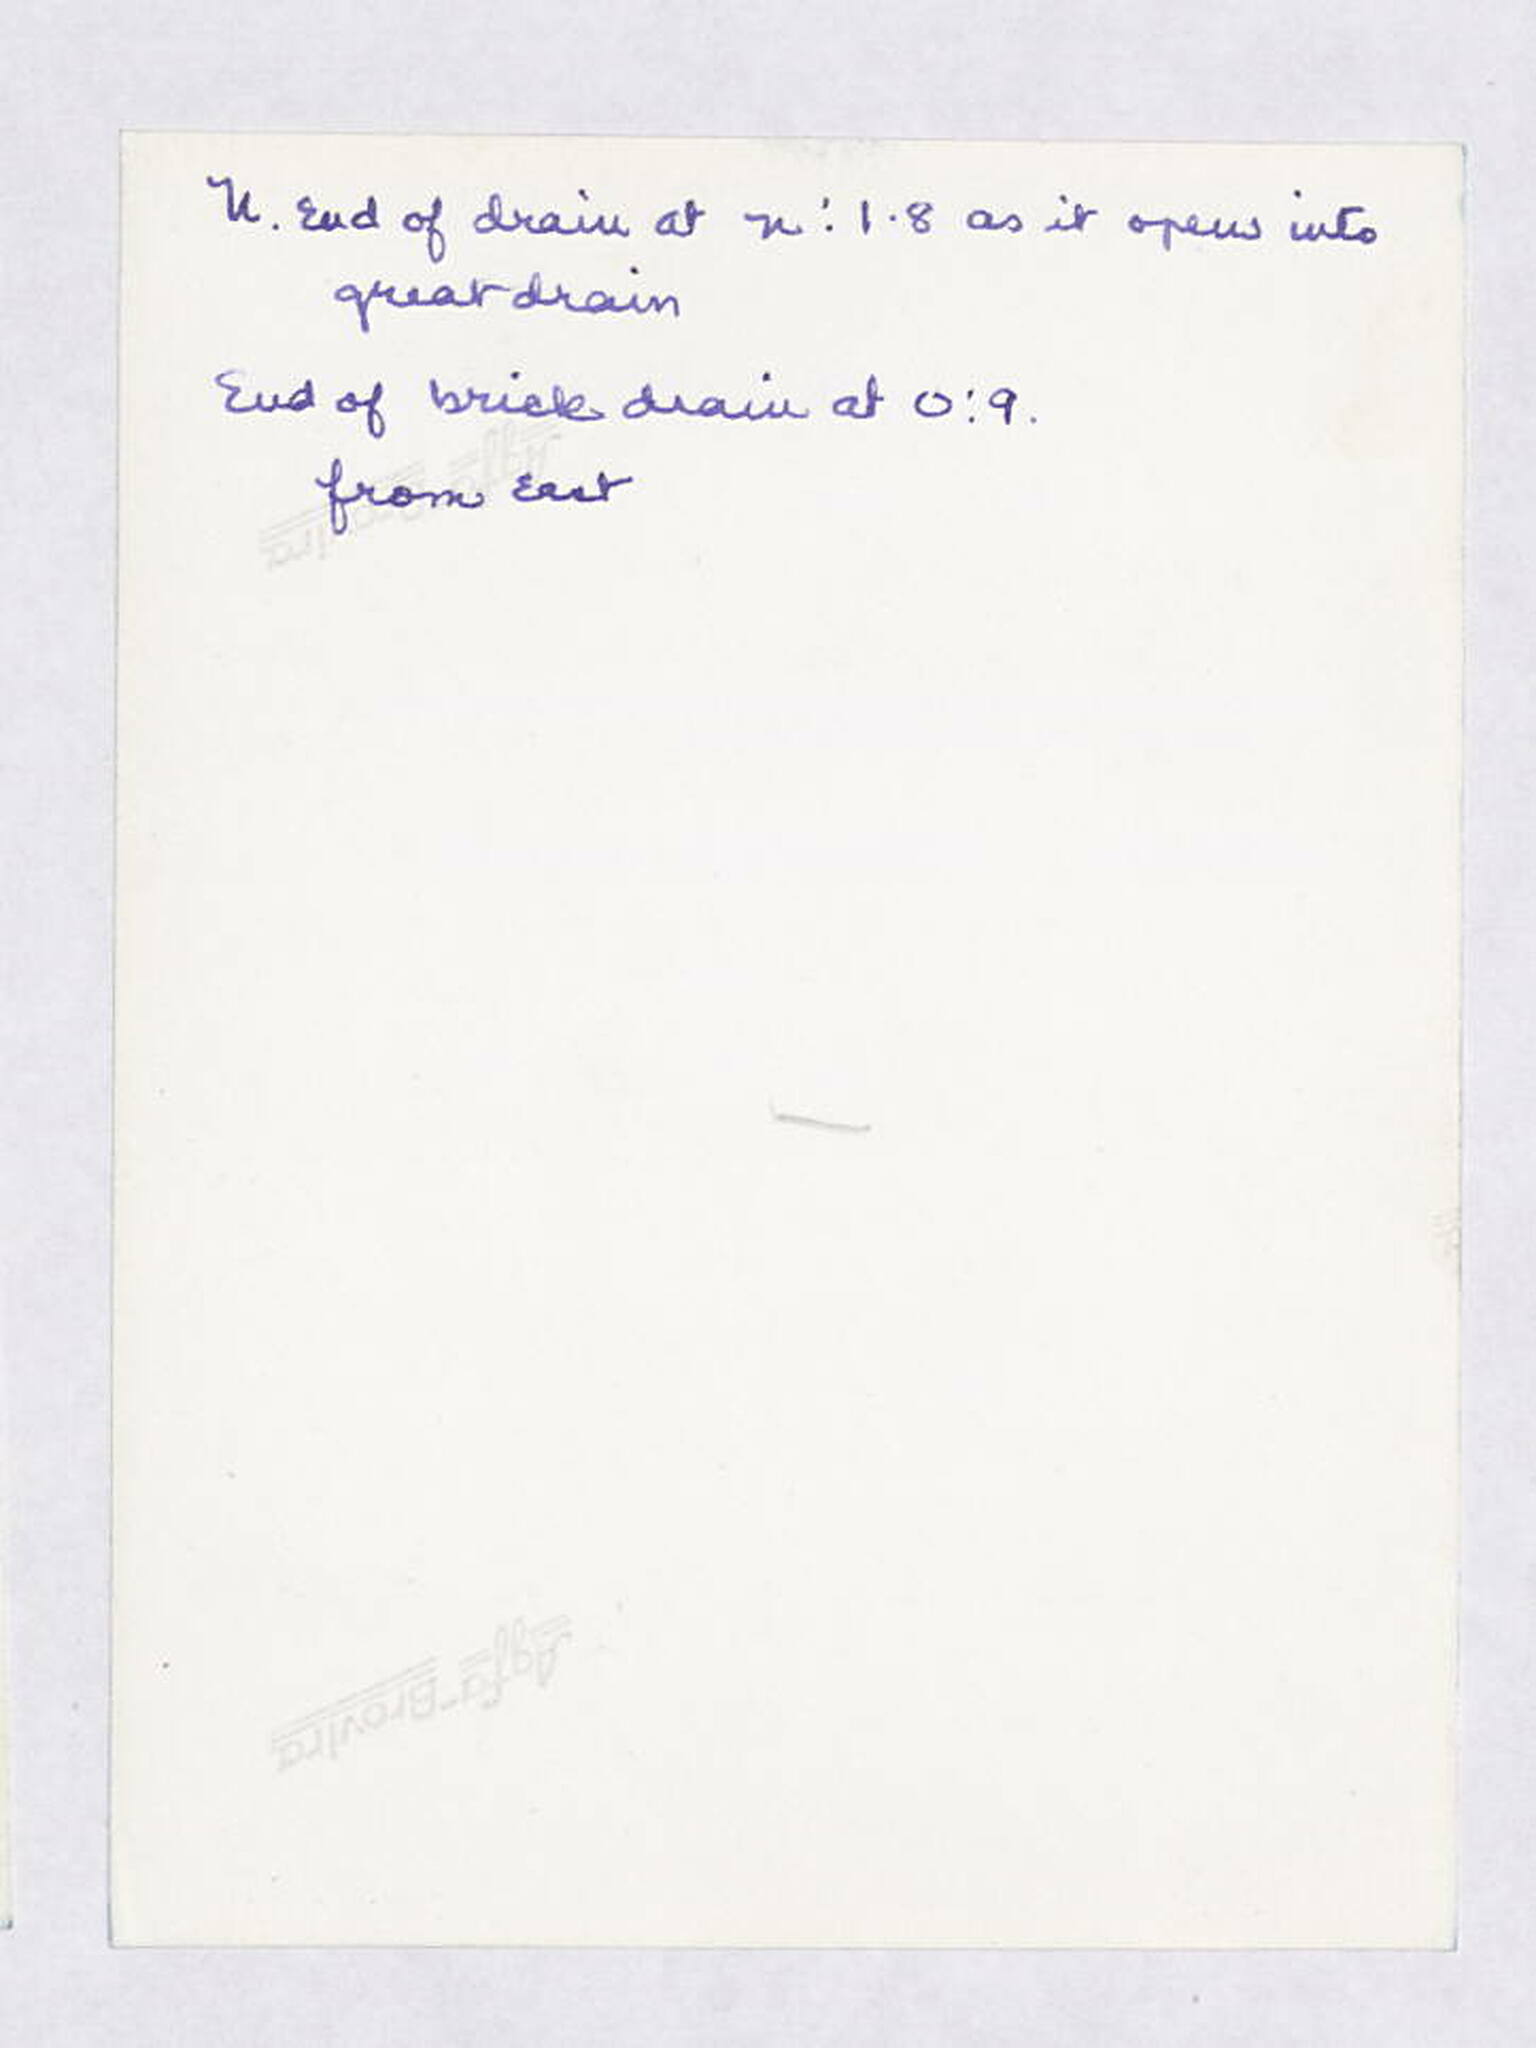 N. End of drain at n': 1.8 as it opens into
great drain
End of brick drain at O:9.
from East
Agfa-Brovira
Agfa-Brovira